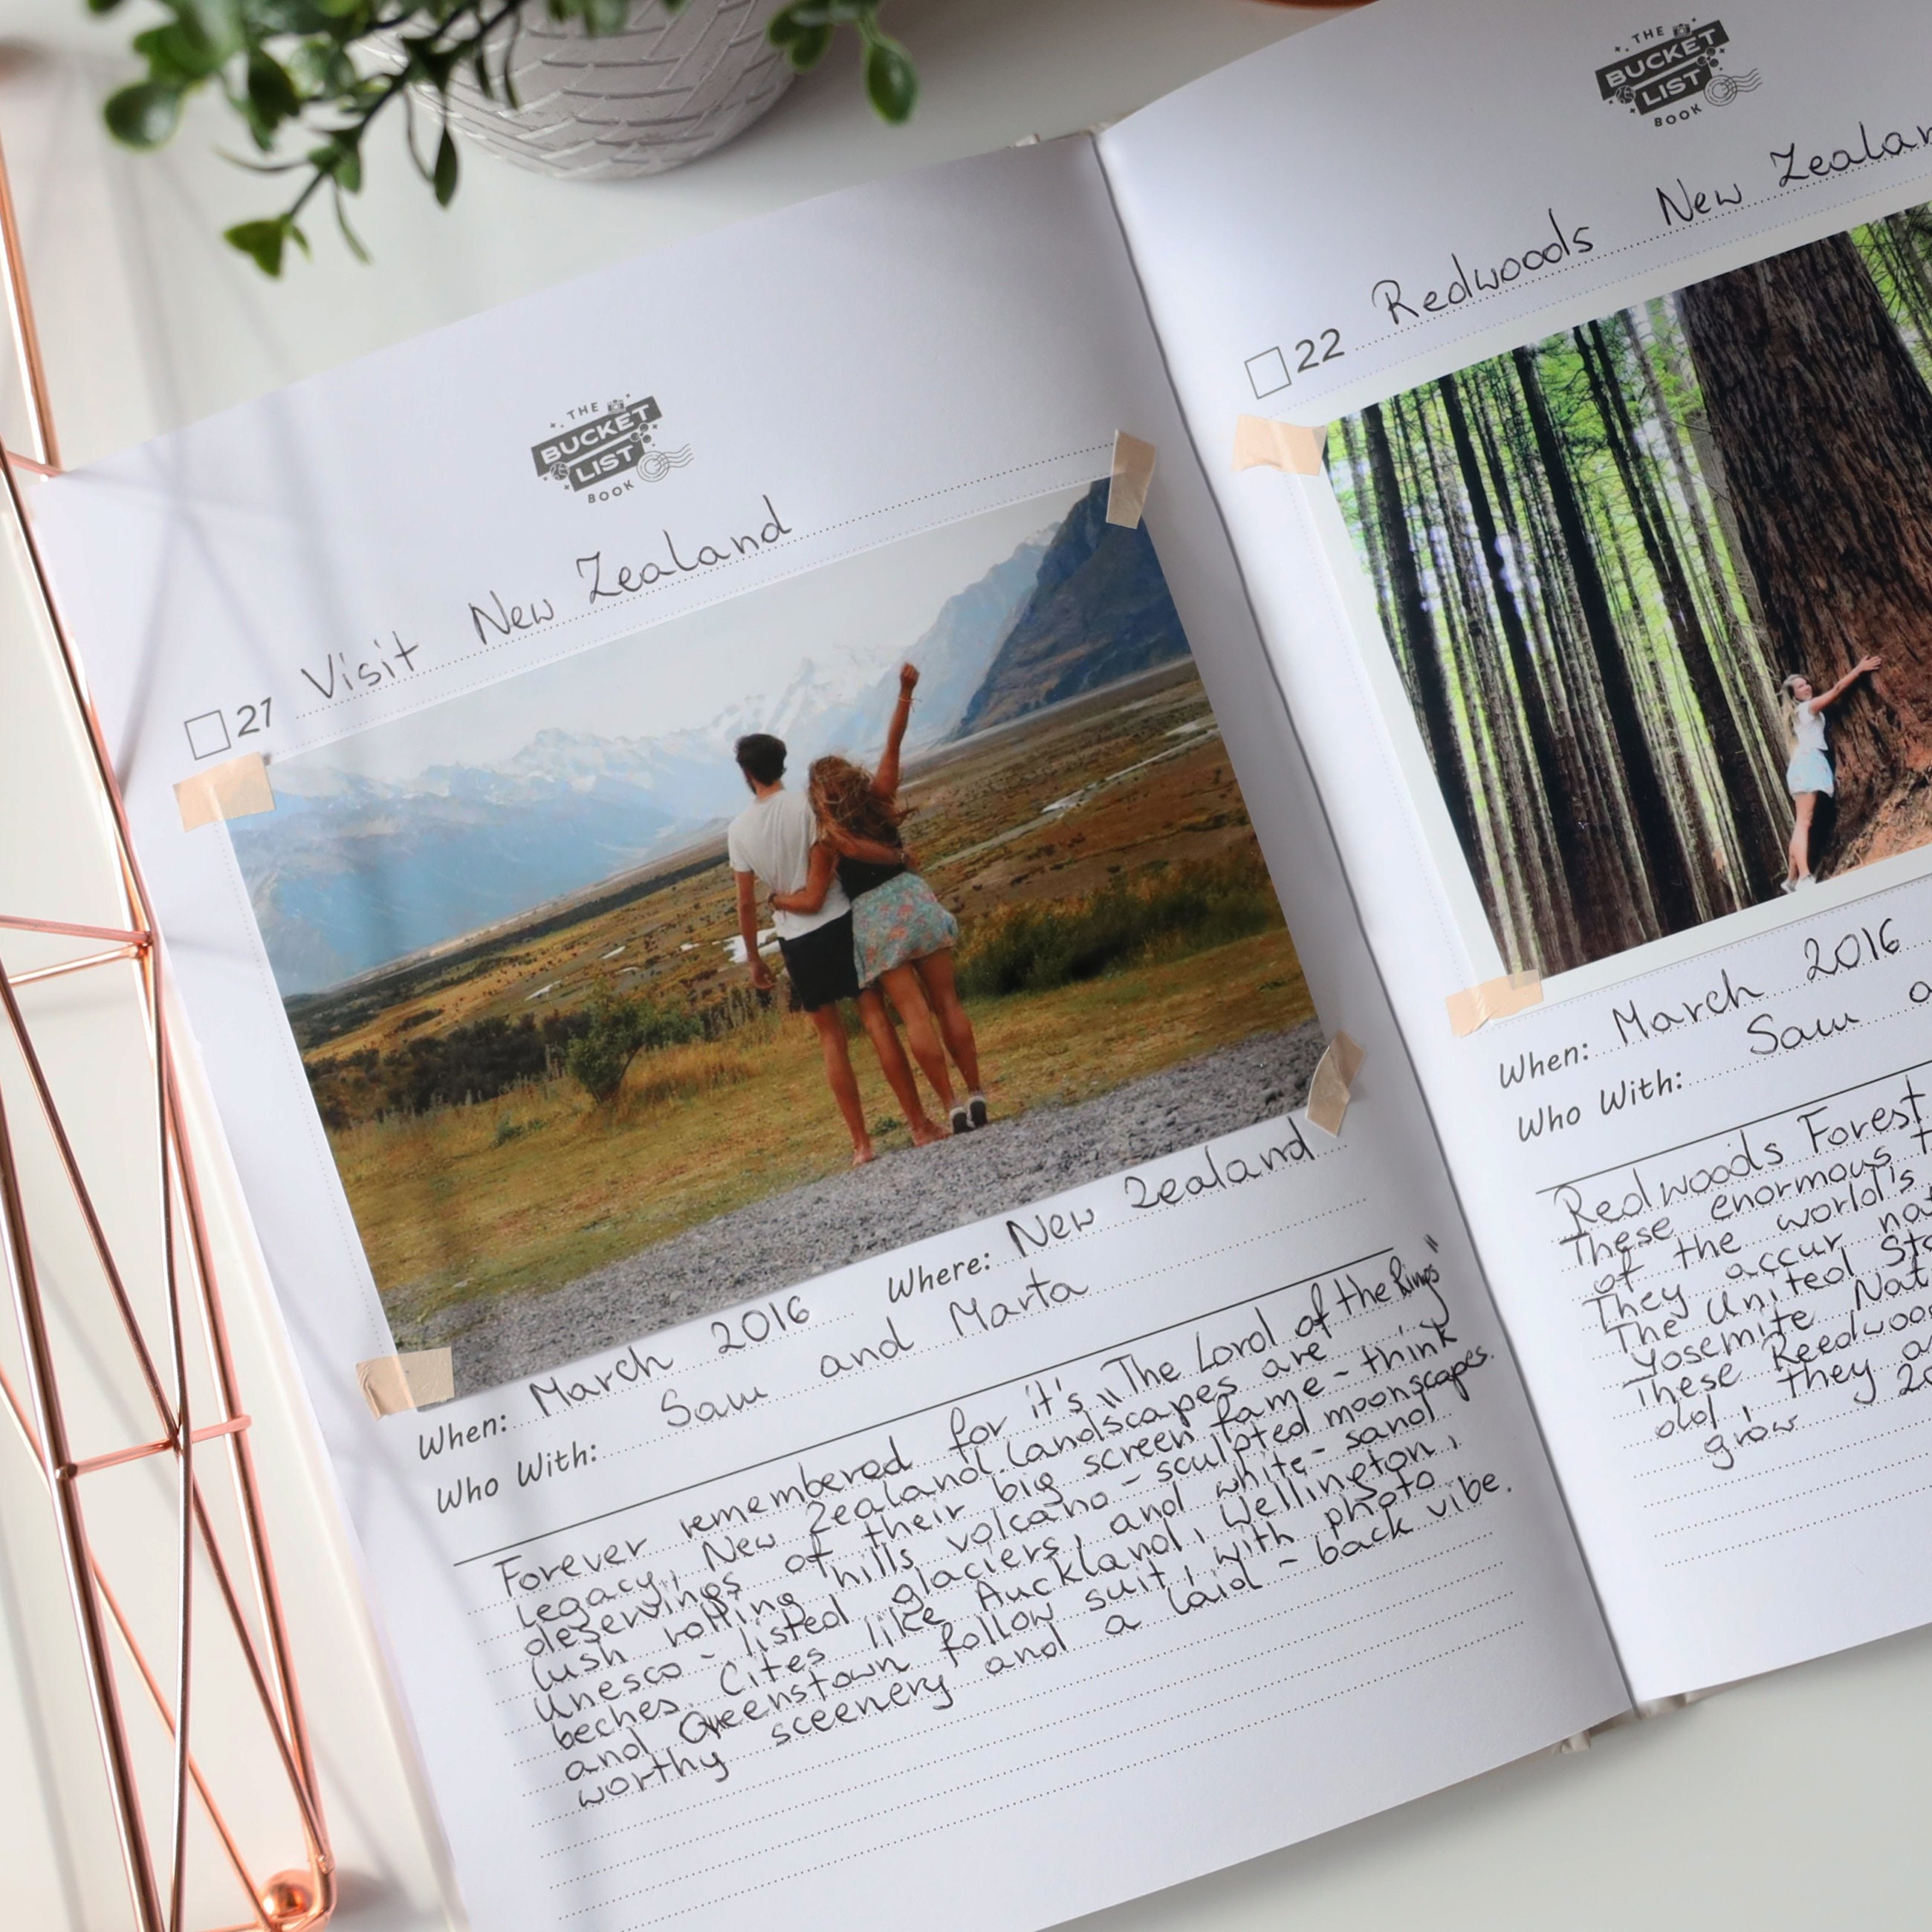 THE
BUCKET
LIST
BOOK
21 Visit New Zealand
When: March 2016 Where: New Zealand
Who With: Sam and Marta
Forever remembered for it's "The Lord of the Rings"
legacy, New Zealand landscapes are
deservings of their big screen fame - think
lush rolling hills volcano - sculpted moonscapes.
Unesco - listed glaciers, and white - sand
beches. Cites like Auckland, Wellington,
and Queenstown follow suit, with photo
worthy sceenery and a laid - back vibe.
THE
BUCKET
LIST
BOOK
22 Redwoods New
When: March 2016
Who With: Sam
Redwoods Forest
These enormous
of the world's
They accur
The United
Yosemite
These Reedwoo
old, they
grow